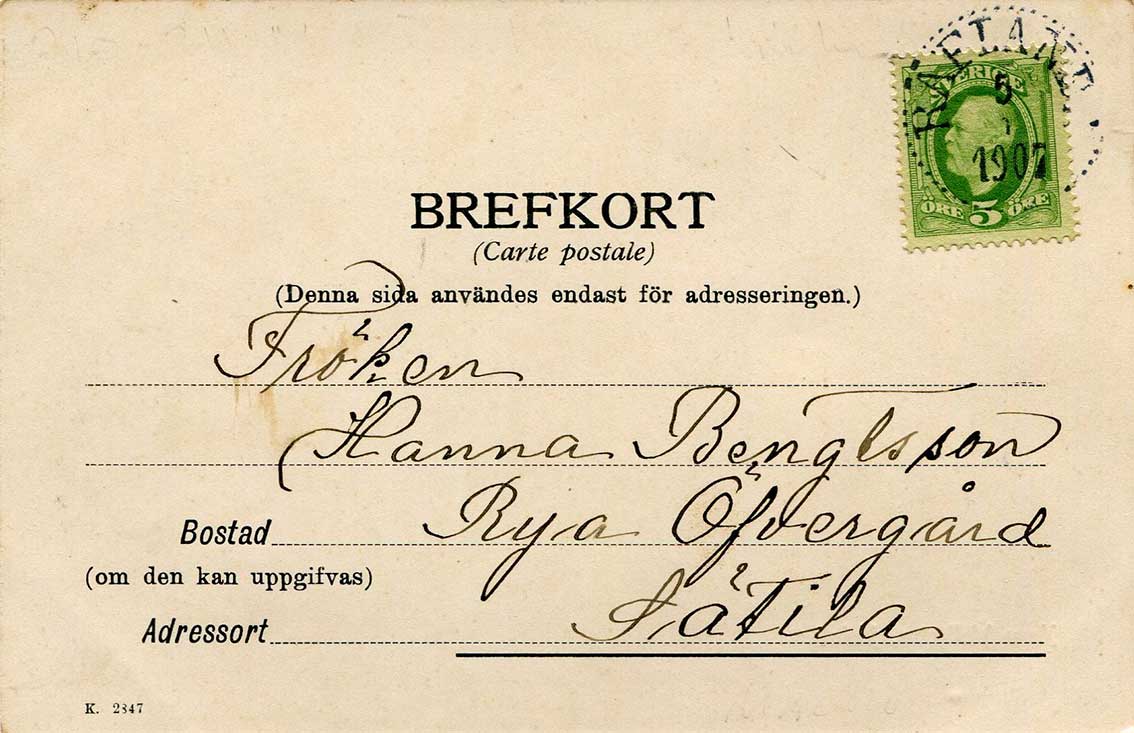 RÄFLANDA
SVERIGE
5
1
1907
ÖRE 5 ÖRE
BREFKORT
(Carte postale)
(Denna sida användes endast för adresseringen.)
Fröken
Hanna Bengtsson
Bostad Rya Öfvergård
(om den kan uppgifvas)
Adressort Sätila
K. 2847